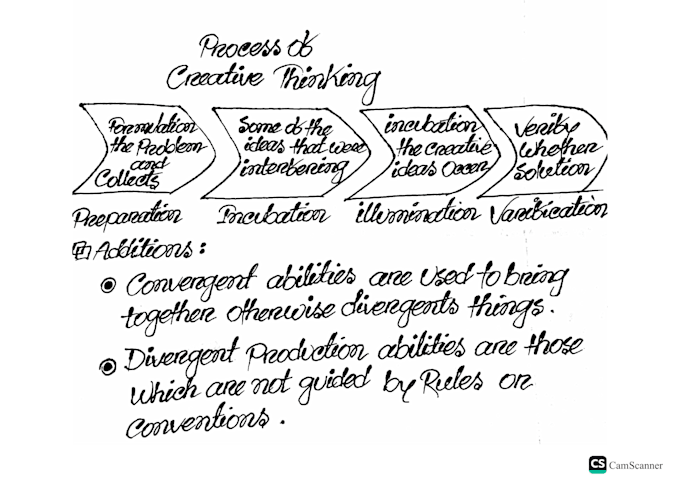 Process of
Creative Thinking
Formulation
the Problem
and
Collects
Some of the
ideas that were
interbening
incubation
the creative
ideas Occer
Verify
Whether
Solution
Preparation
Incubation
illumination
Varification
Additions:
Convergent abilities are used to bring
together otherwise divergents things.
Divergent Production abilities are those
which are not guided by Rules or
conventions.
CS CamScanner